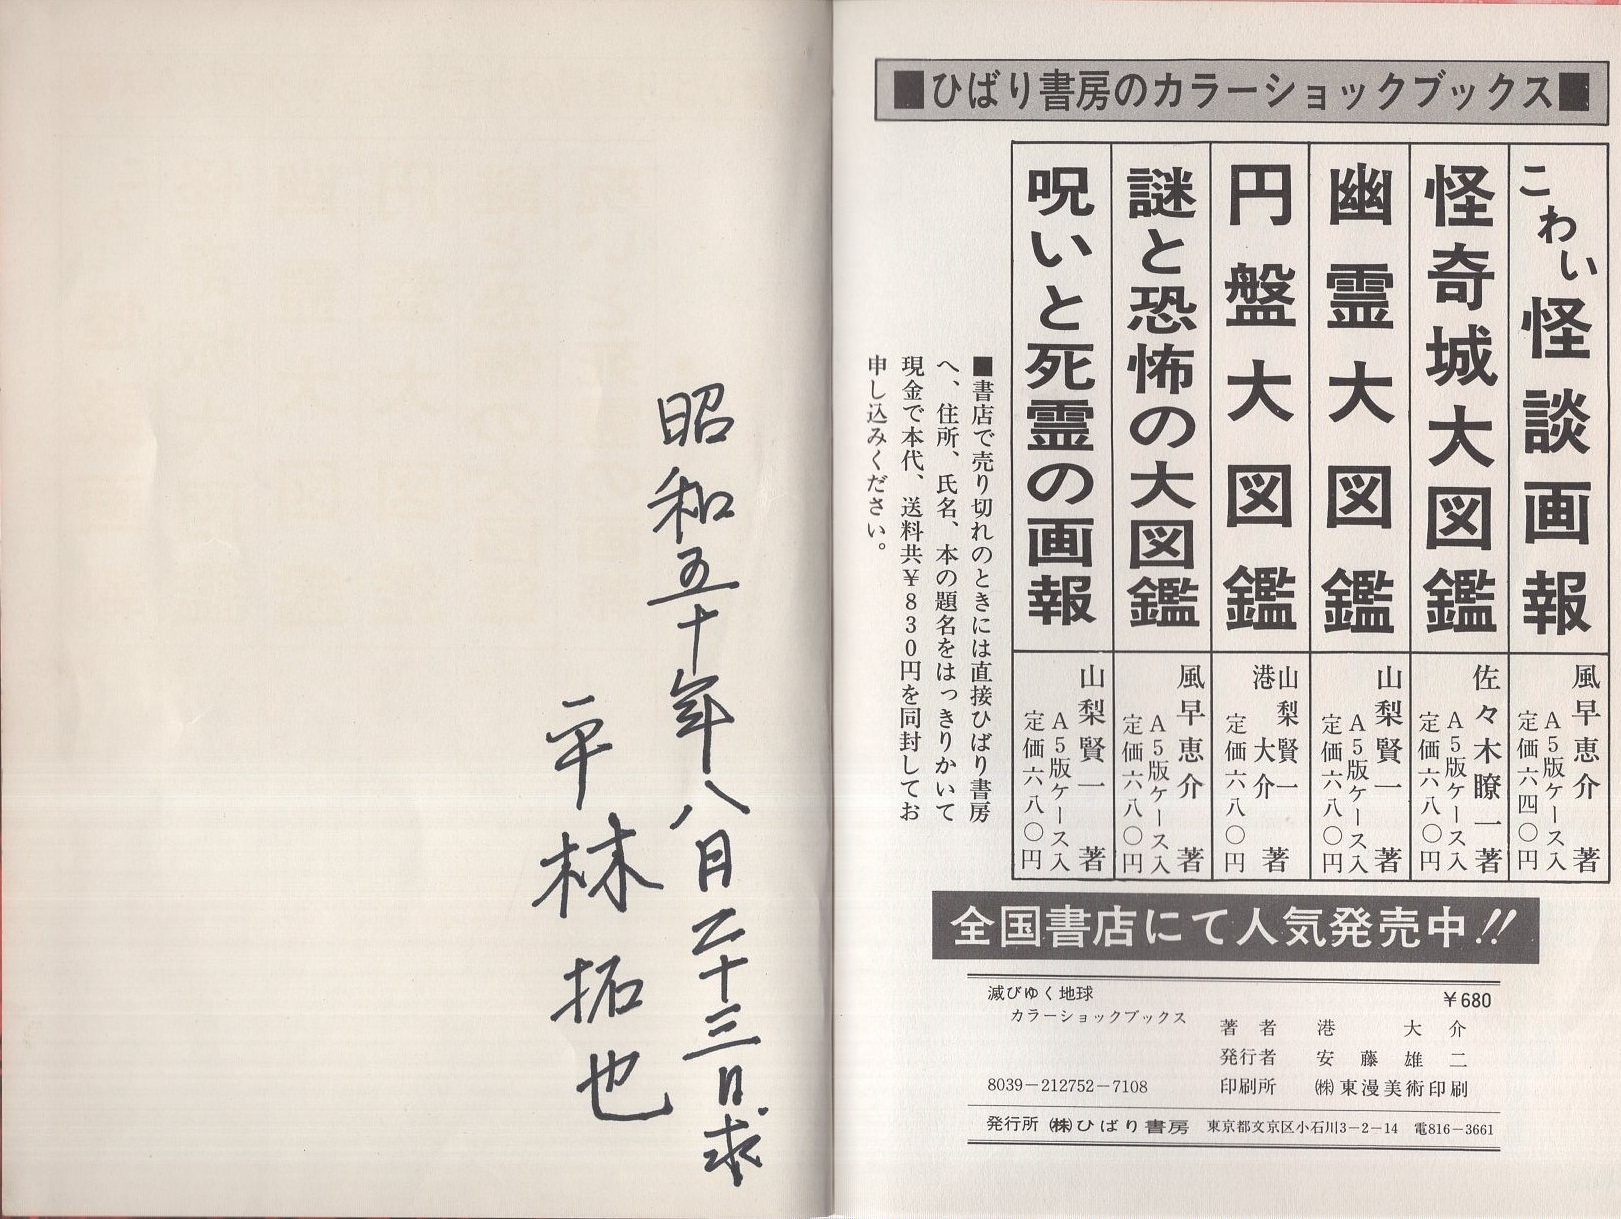 ■ひばり書房のカラーショックブックス■
こわい怪談画報
風早恵介 著
A5版ケース入
定価六四〇円
怪奇城大図鑑
佐々木瞭一 著
A5版ケース入
定価六八〇円
幽霊大図鑑
山梨賢一 著
A5版ケース入
定価六八〇円
円盤大図鑑
山梨賢一
港 大介 著
定価六八〇円
謎と恐怖の大図鑑
風早恵介 著
A5版ケース入
定価六八〇円
呪いと死霊の画報
山梨賢一 著
A5版ケース入
定価六八〇円
■書店で売り切れのときには直接ひばり書房
へ、住所、氏名、本の題名をはっきりかいて
現金で本代、送料共￥830円を同封してお
申し込みください。
全国書店にて人気発売中!!
滅びゆく地球
カラーショックブックス
￥680
著者 港 大介
発行者 安藤雄二
8039-212752-7108
印刷所 ㈱東漫美術印刷
発行所 ㈱ひばり書房 東京都文京区小石川3-2-14 電816-3661
昭和五十年八月二十三日求
平林拓也